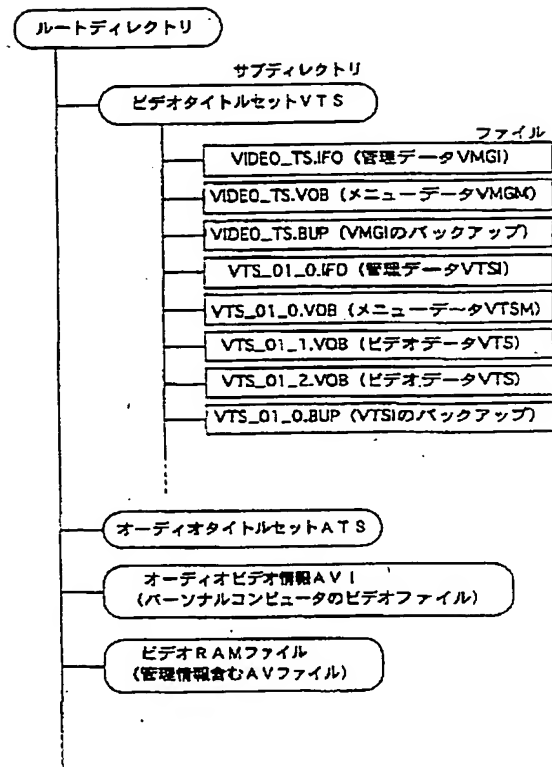 ルートディレクトリ
サブディレクトリ
ビデオタイトルセットVTS
ファイル
VIDEO_TS.IFO (管理データVMGI)
VIDEO_TS.VOB (メニューデータVMGM)
VIDEO_TS.BUP (VMGIのバックアップ)
VTS_01_0.IFO (管理データVTSI)
VTS_01_0.VOB (メニューデータVTSM)
VTS_01_1.VOB (ビデオデータVTS)
VTS_01_2.VOB (ビデオデータVTS)
VTS_01_0.BUP (VTSIのバックアップ)
オーディオタイトルセットATS
オーディオビデオ情報AVI
(パーソナルコンピュータのビデオファイル)
ビデオRAMファイル
(管理情報含むAVファイル)